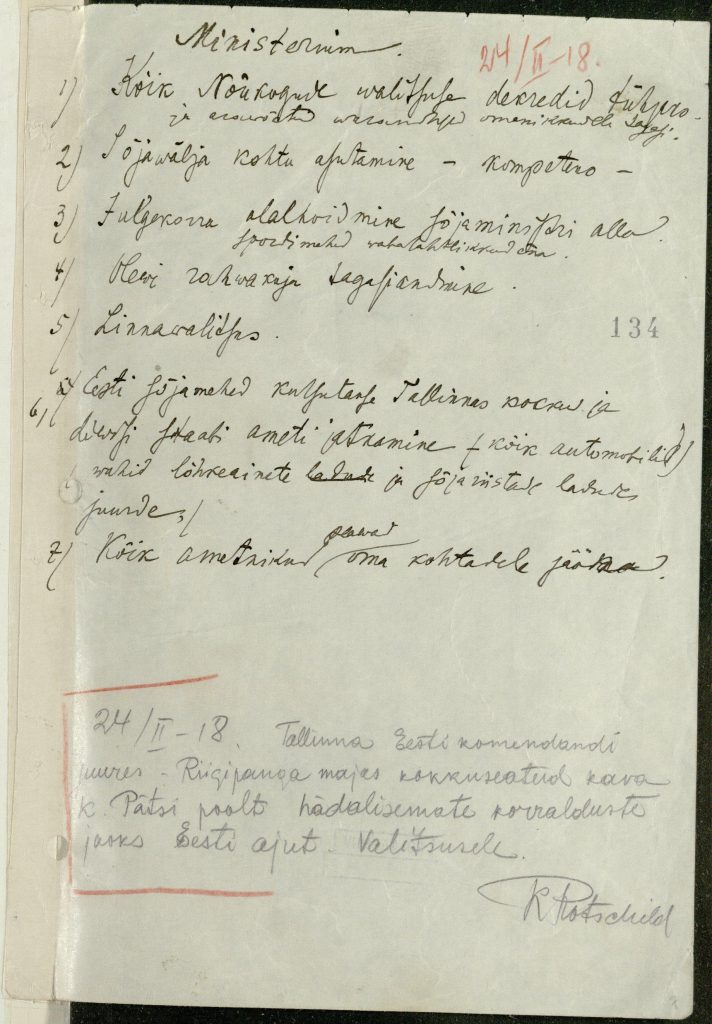 Ministerium.
24/II-18.
1) Kõik Nõukogude walitsuse dekredid tühjaks
ja ärawõetud waranduse omanikkudele tagasi.
2) Sõjawälja kohtu asutamine – kompetens –
3) Julgekorra alalhoidmine sõjaministri alla.
spordimehed wabatahtlikkudena.
4) Olewi rahwamaja tagasiandmine.
5) Linnawalitsus.
134
6) Eesti sõjamehed kutsutakse Tallinnas kokku ja
staabi ameti jatkamine (kõik automobilid)
wahid lõhkeainete ladude ja sõjariistade ladude
juurde,/
7) Kõik ametnikud peawad oma kohtadele jääma.
24/II–18. Tallinna Eesti komendandi
juures - Riigipanga majas kokkuseatud kava
K. Pätsi poolt hädalisemate korralduste
jaoks Eesti ajut. Valitsusele.
K Rotschild